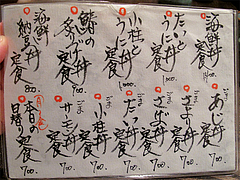 海鮮丼定食
たいとうに丼定食 1000.
小柱とうに丼定食 1000.
鮭の炙り丼定食 800.
海鮮納豆丼定食 900.
ごまあじ丼定食 700.
ごまさより丼定食 700.
ごまさば丼定食 700.
ごまたい丼定食 700.
ごま小柱丼定食 700.
ごまサーモン丼定食 700.
本日の日替り定食 700.